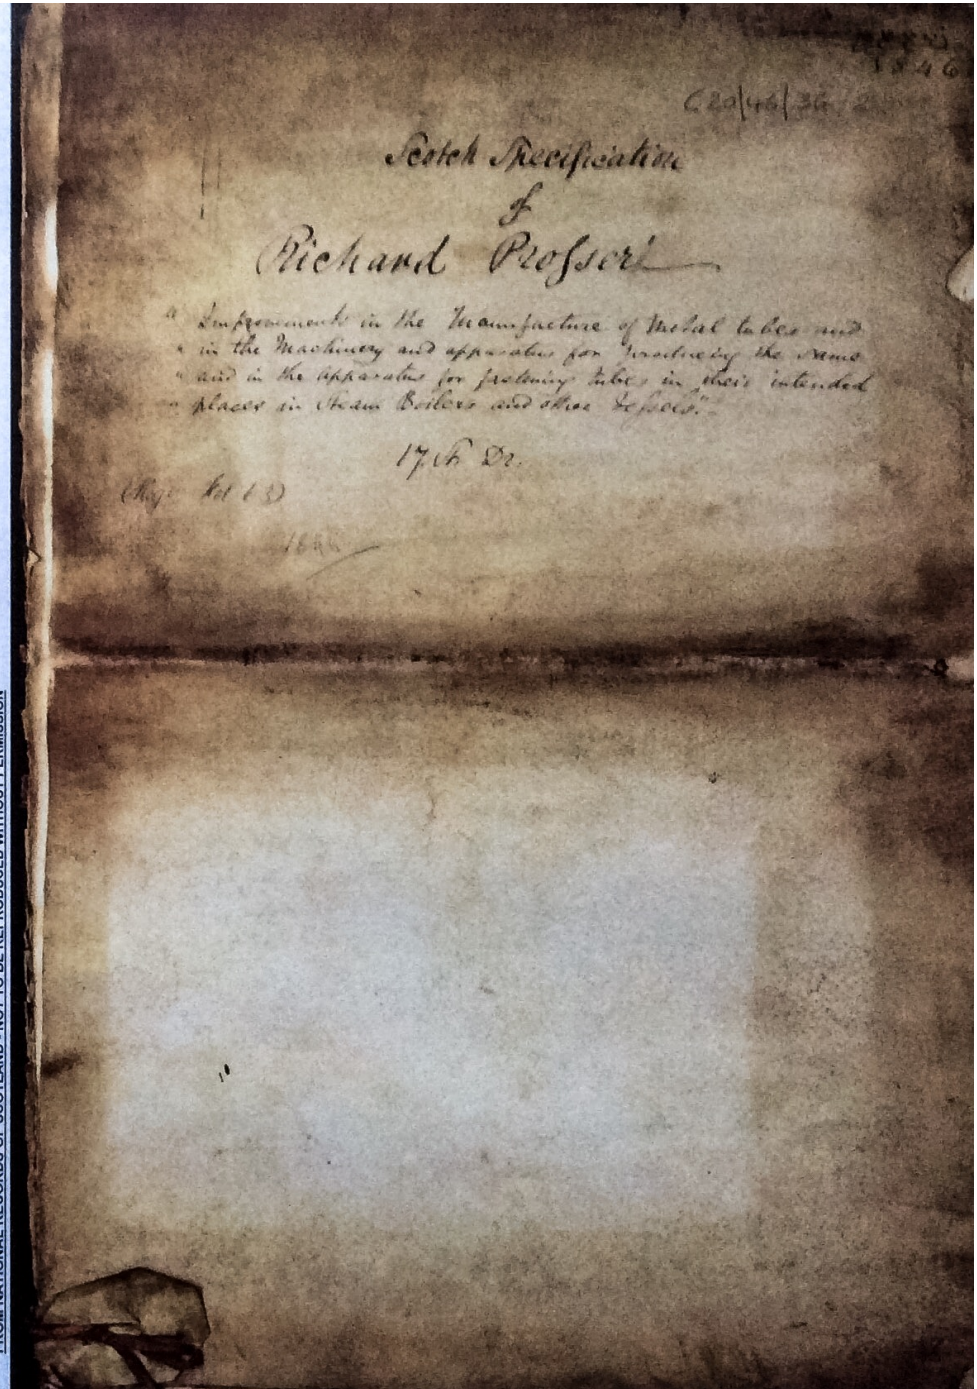 1846
C20/46/36/2
Scotch Specification
of
Richard Prosser's
" Improvements in the Manufacture of Metal tubes and
" in the Machinery and apparatus for producing the same
" and in the apparatus for fastening tubes in their intended
" places in Steam Boilers and other Vessels."
17 Sh. Dr.
FROM NATIONAL RECORDS OF SCOTLAND - NOT TO BE REPRODUCED WITHOUT PERMISSION